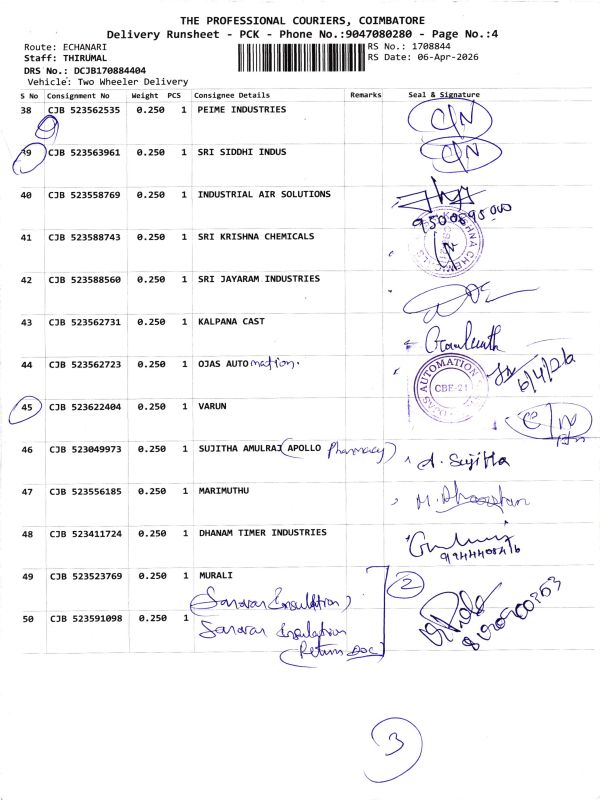 THE PROFESSIONAL COURIERS, COIMBATORE
Delivery Runsheet - PCK - Phone No.:9047080280 - Page No.:4
Route: ECHANARI RS No.: 1708844
Staff: THIRUMAL RS Date: 06-Apr-2026
DRS No.: DCJB170884404
Vehicle: Two Wheeler Delivery
S No Consignment No Weight PCS Consignee Details Remarks Seal & Signature
38 CJB 523562535 0.250 1 PEIME INDUSTRIES C/N
39 CJB 523563961 0.250 1 SRI SIDDHI INDUS C/N
40 CJB 523558769 0.250 1 INDUSTRIAL AIR SOLUTIONS
41 CJB 523588743 0.250 1 SRI KRISHNA CHEMICALS
42 CJB 523588560 0.250 1 SRI JAYARAM INDUSTRIES
43 CJB 523562731 0.250 1 KALPANA CAST
44 CJB 523562723 0.250 1 OJAS AUTOmation. AUTOMATION CBE-21 6/4/26
45 CJB 523622404 0.250 1 VARUN C/N
46 CJB 523049973 0.250 1 SUJITHA AMULRAJ (APOLLO Pharmacy) A. Sujitha
47 CJB 523556185 0.250 1 MARIMUTHU
48 CJB 523411724 0.250 1 DHANAM TIMER INDUSTRIES
49 CJB 523523769 0.250 1 MURALI 2
50 CJB 523591098 0.250 1
(Return Doc)
3